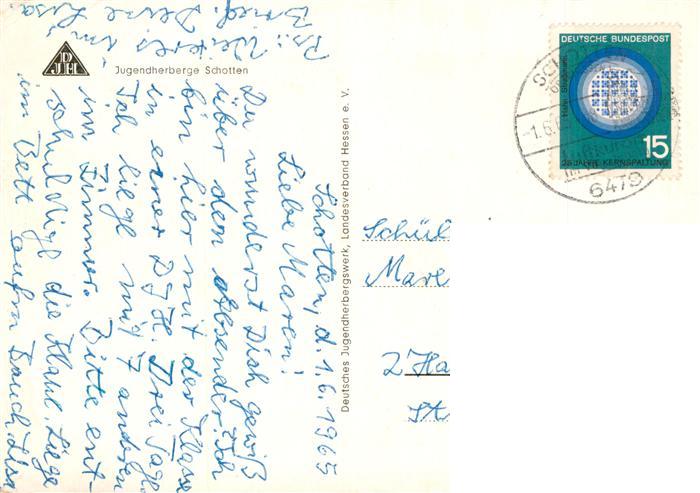 Jugendherberge Schotten
DJH
Deutsches Jugendherbergswerk, Landesverband Hessen e. V.
Schotten, d. 1.6.1965
Liebe Maren!
Du wunderst Dich gewiß
über den Absender. Ich
bin hier mit der Klasse
in einer DJH. Drei Tage.
Ich liege mit 7 anderen
im Zimmer. Bitte ent-
schuldige die Klaue. Liege
im Bett aufm Bauch.
Weiteres im
Brief. Deine Lisa.
Schül
Mare
2 Ha
St
DEUTSCHE BUNDESPOST
Hahn · Straßmann
15
25 JAHRE KERNSPALTUNG
SCHOTTEN
-1.6.
6479